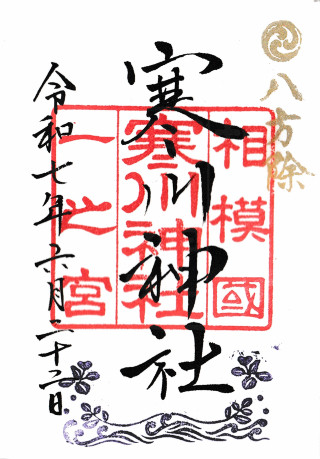 八方除
寒川神社
相模國
寒川神社
一之宮
令和七年六月二十二日